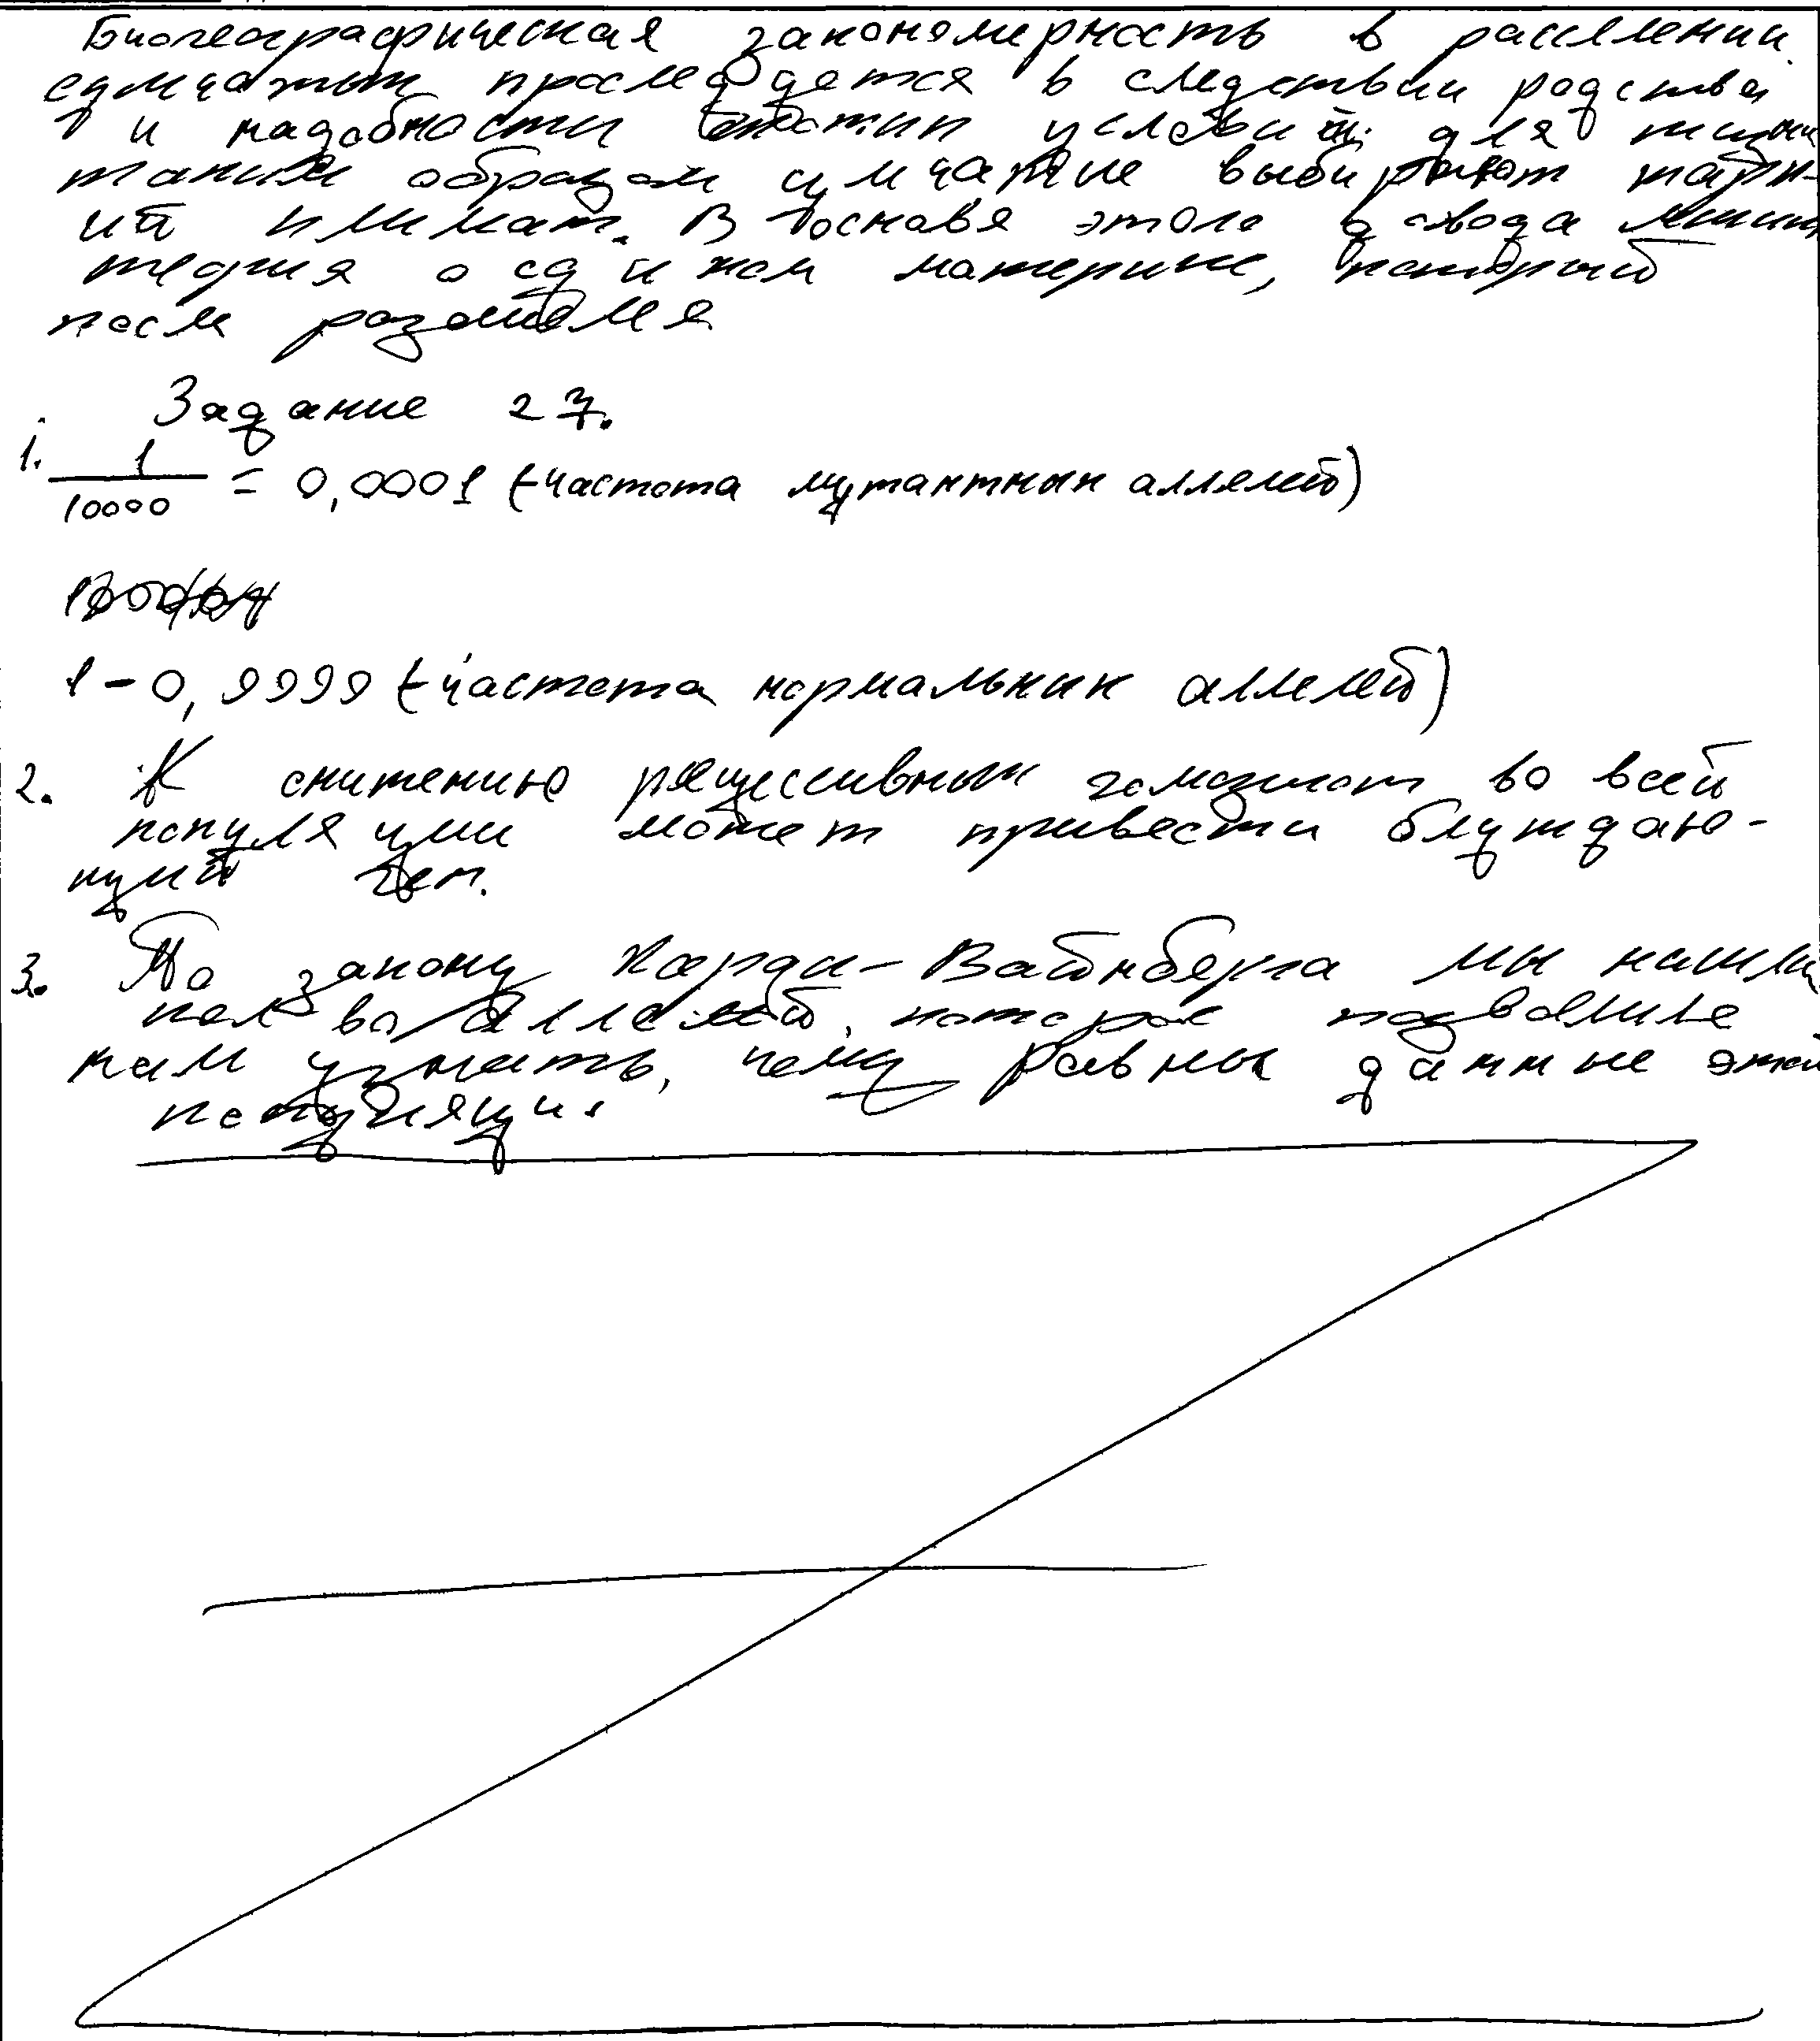 Биогеографическая закономерность в расселении
сумчатых проследуется в следствии родства
и надобности похожих условий для жизни
таким образом сумчатые выбирают жарк-
ий климат. В основе этого довода лежит
теория о едином материке, который
после разошёлся
Задание 27.
1. 1/10000 = 0,0001 (-частота мутантных аллелей)
1-0,9999 (-частота нормальных аллелей)
2. К снижению рецессивных гомозигот во всей
популяции может привести блуждаю-
щий ген.
3. По закону Харди-Вайнберга мы нашли
кол-во аллелей, которое позволило
нам узнать, чему равны данные этой
популяции.